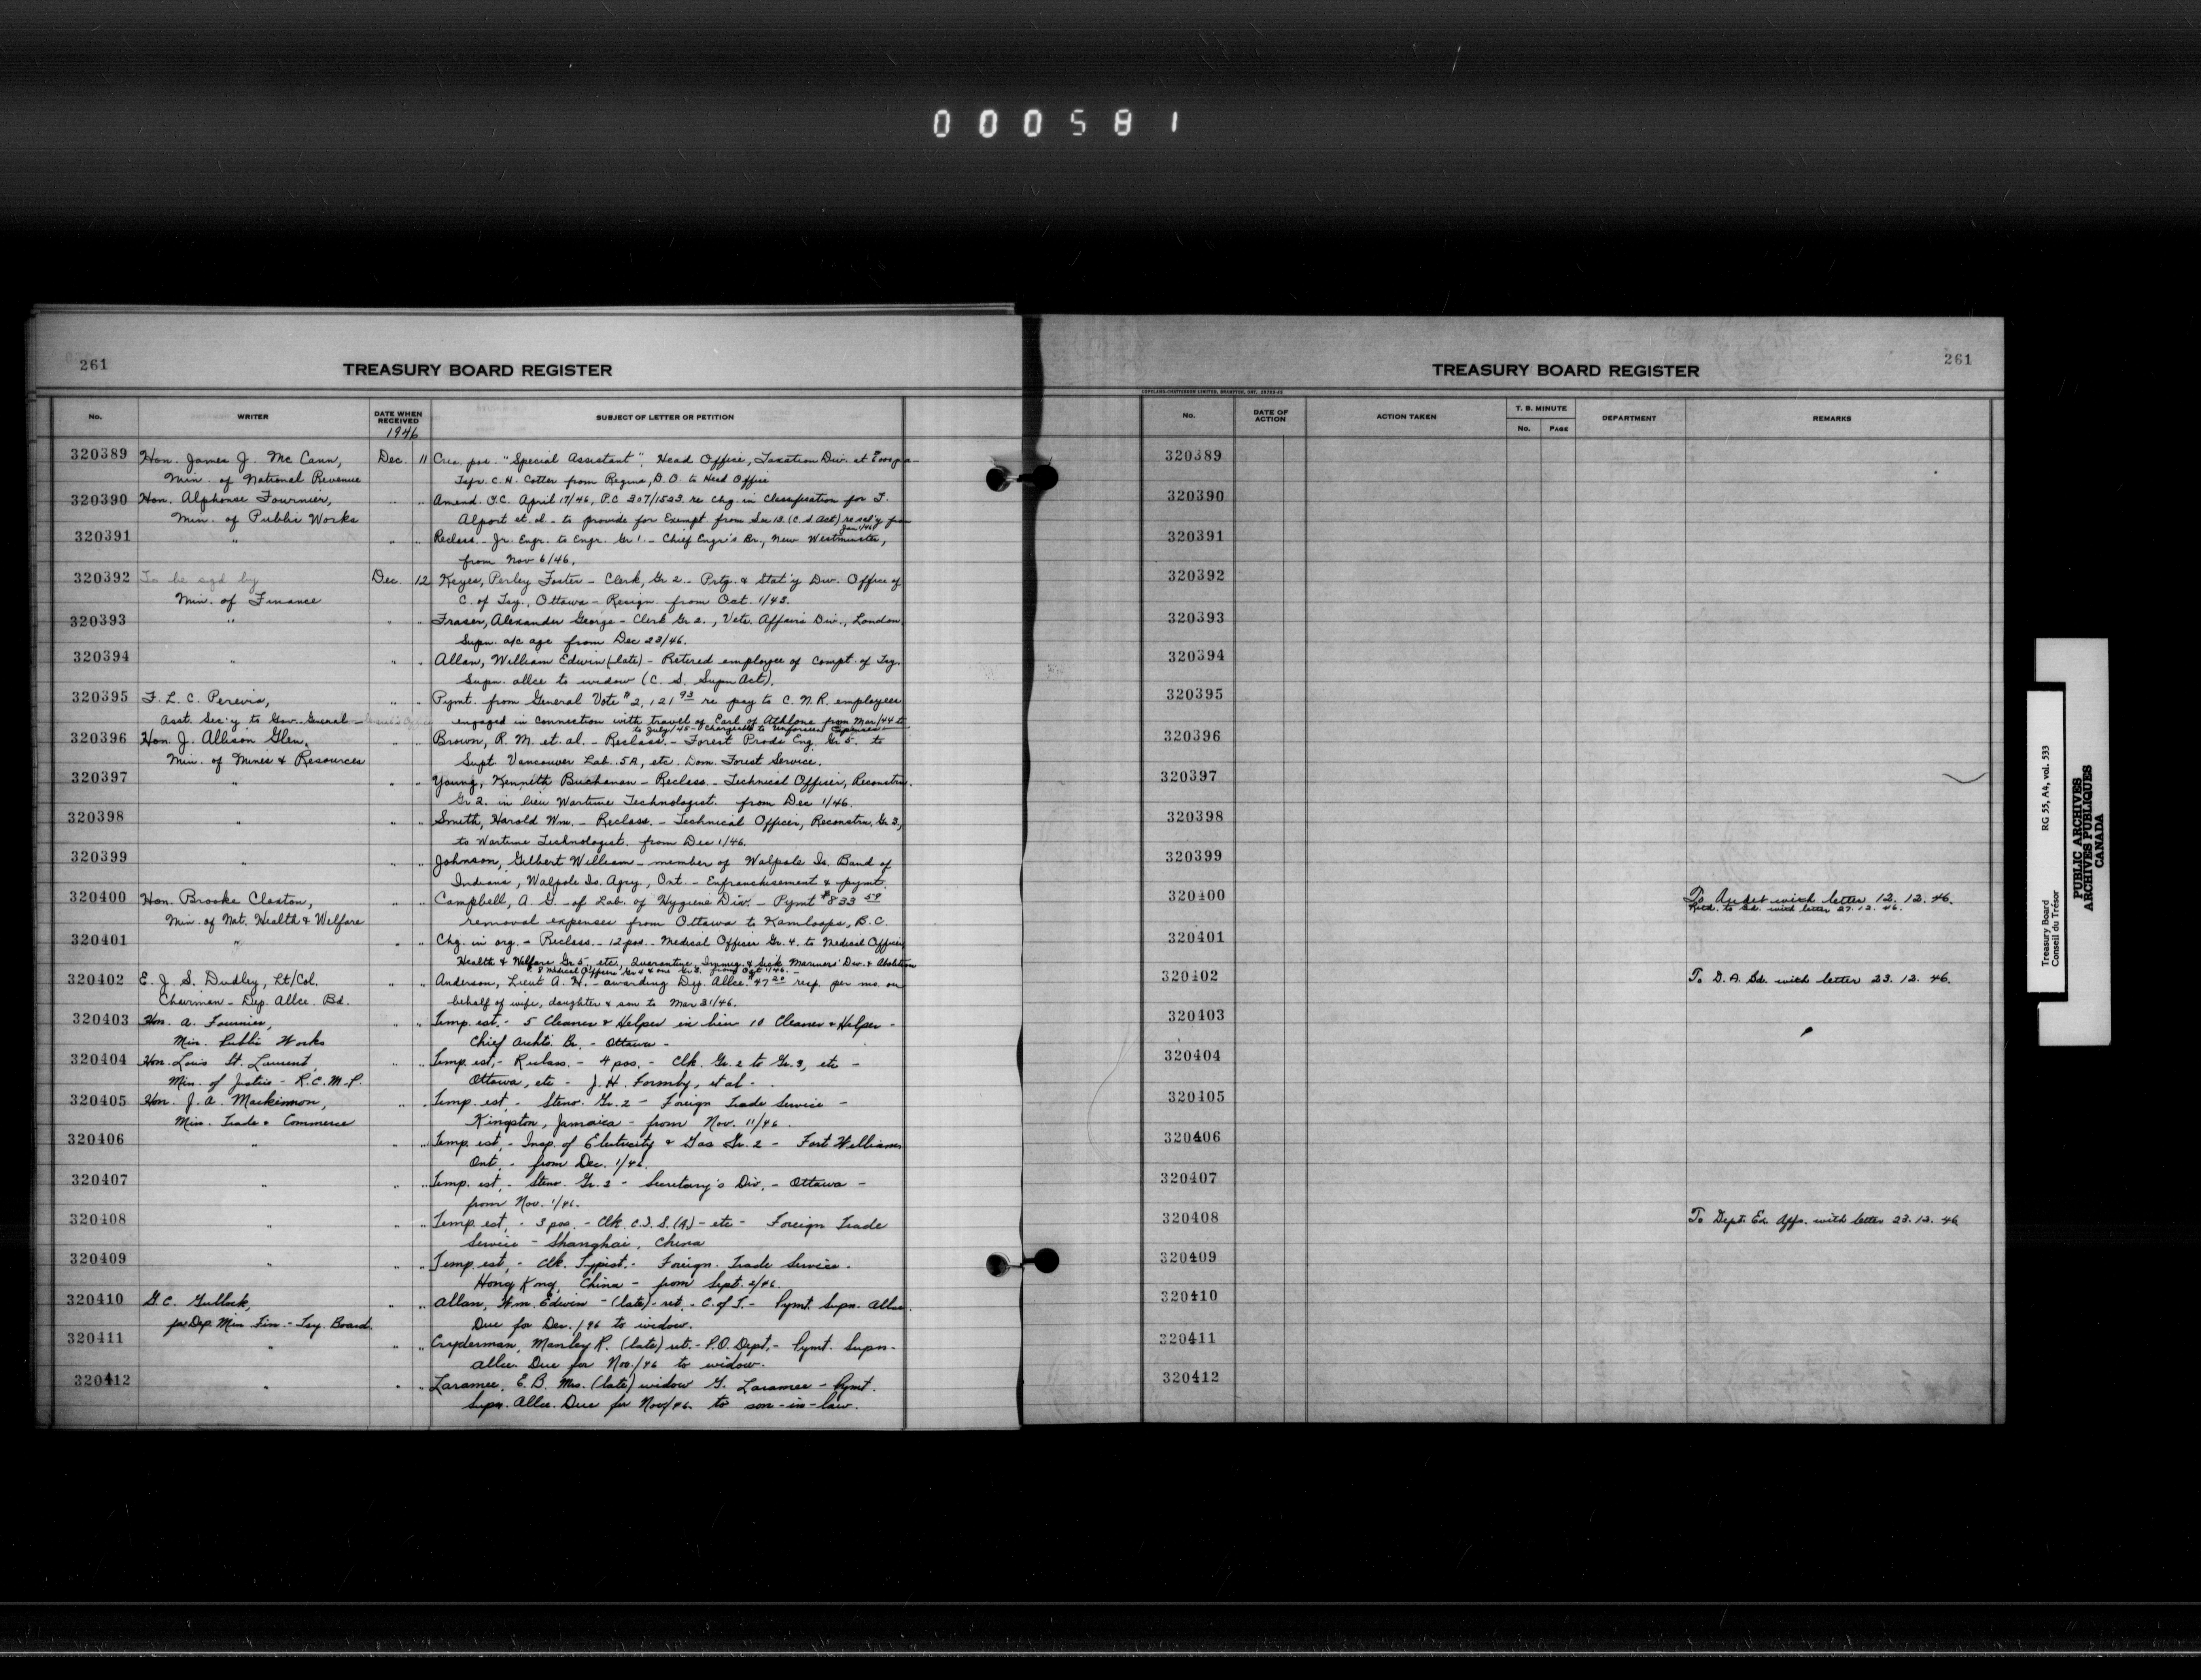 000581
261
TREASURY BOARD REGISTER
No.
WRITER
DATE WHEN RECEIVED
1946
SUBJECT OF LETTER OR PETITION
320389 Hon. James J. Mc Cann, Dec. 11 Crea. pos. "Special Assistant", Head Office, Taxation Div. at
Min. of National Revenue Tsfr. C. H. Cotter from Regina, D.O. to Head Office
320390 Hon. Alphonse Fournier, " " Amend. O.C. April 17/46, P.C. 307/1523 re chg. in Classification for F.
Min. of Public Works Alport et. al - to provide for Exempt. from Sec 13 (C. S Act) re sal'y from
Jan 1/46
320391 " " " Reclass. - Jr. Engr. to Engr. Gr 1. - Chief Engr's Br., New Westminster,
from Nov 6/46.
320392 To be sgd by Dec. 12 Keyes, Perley Foster - Clerk, Gr 2. - Prtg. & Stat'y Div. Office of
Min. of Finance C. of Tsy., Ottawa - Resign. from Oct. 1/43.
320393 " " " Fraser, Alexander George - Clerk Gr 2., Vets. Affairs Div., London
Supn. a/c age from Dec 23/46.
320394 " " " Allan, William Edwin (late) - Retired employee of Compt. of Tsy.
Supn. allce to widow (C. S. Supn Act).
320395 F. L. C. Pereira, " " Pymt. from General Vote $2,121 93 re pay to C. N. R. employees
Asst. Sec'y to Gov. General - engaged in connection with travel of Earl of Athlone from Mar/44 to
to July/45 - chargeable to Unforseen Expenses
320396 Hon. J. Allison Glen, " " Brown, R. M. et. al. - Reclass. - Forest Prods Eng. Gr 5. to
Min. of Mines & Resources Supt Vancouver Lab. 5A, etc. Dom. Forest Service.
320397 " " " Young, Kennith Buchanan - Reclass. - Technical Officer, Reconstrn.
Gr 2. in lieu Wartime Technologist. from Dec 1/46.
320398 " " " Smith, Harold Wm. - Reclass. - Technical Officer, Reconstrn. Gr 3,
to Wartime Technologist. from Dec 1/46.
320399 " " " Johnson, Gilbert William - member of Walpole Is. Band of
Indians, Walpole Is. Agcy., Ont. - Enfranchisement & pymt.
320400 Hon. Brooke Claxton, " " Campbell, A. G. - of Lab. of Hygiene Div. - Pymt $833 59
Min. of Nat. Health & Welfare removal expenses from Ottawa to Kamloops, B.C.
320401 " " " Chg. in org. - Reclass. - 12 pos. - Medical Officer Gr. 4. to Medical Officer
Health & Welfare Gr 5, etc., Quarantine, Immig. & Sick Mariners' Div. & Abolition
8 Medical Officers Gr 4 & one Gr 3. from Oct 1/46. -
320402 E. J. S. Dudley, Lt/Col. " " Anderson, Lieut A. H. - awarding Dep. Allce. $47 20 resp. per mo. on
Chairman - Dep. Allce. Bd. behalf of wife, daughter & son to Mar 31/46.
320403 Hon. A. Fournier, " " Temp. est. - 5 Cleaner & Helper in lieu 10 Cleaner & Helper -
Min. Public Works Chief Archts. Br. - Ottawa -
320404 Hon. Louis St. Laurent, " " Temp. est. - Reclass. - 4 pos. - Clk. Gr. 2 to Gr. 3, etc -
Min. of Justice - R.C.M.P. Ottawa, etc - J. H. Formby, et al -
320405 Hon. J. A. Mackinnon, " " Temp. est. - Steno. Gr. 2 - Foreign Trade Service -
Min. Trade & Commerce Kingston, Jamaica - from Nov. 11/46.
320406 " " " Temp. est. - Insp. of Electricity & Gas Gr. 2 - Fort William,
Ont. - from Dec. 1/46.
320407 " " " Temp. est. - Steno. Gr. 2 - Secretary's Div. - Ottawa -
from Nov. 1/46.
320408 " " " Temp. est. - 3 pos. - Clk. C.I.S. (A) - etc - Foreign Trade
Service - Shanghai, China
320409 " " " Temp. est. - Clk. Typist. - Foreign Trade Service -
Hong Kong, China - from Sept. 2/46.
320410 G. C. Gullock, " " Allan, Wm. Edwin - (late) - ret. - C. of T. - Pymt. Supn. Allce.
for Dep. Min. Fin. - Tsy. Board. Due for Dec. /46 to widow.
320411 " " " Cryderman, Manley R. (late) ret. - P.O. Dept. - Pymt. Supn.
allce. Due for Nov./46 to widow.
320412 " " " Laramee, E. B. Mrs. (late) widow G. Laramee - Pymt.
Supn. Allce. Due for Nov/46 to son-in-law.
261
TREASURY BOARD REGISTER
COPELAND-CHATTERSON LIMITED, BRAMPTON, ONT.
No.
DATE OF ACTION
ACTION TAKEN
T. B. MINUTE
No. PAGE
DEPARTMENT
REMARKS
320389
320390
320391
320392
320393
320394
320395
320396
320397
320398
320399
320400 To Audit with letter 12. 12. 46.
Retd. to Bd. with letter 27. 12. 46.
320401
320402 To D. A. Bd. with letter 23. 12. 46.
320403
320404
320405
320406
320407
320408 To Dept. Ex. Affs. with letter 23. 12. 46
320409
320410
320411
320412
Treasury Board RG 55, A4, vol. 533
Conseil du Trésor
PUBLIC ARCHIVES
ARCHIVES PUBLIQUES
CANADA